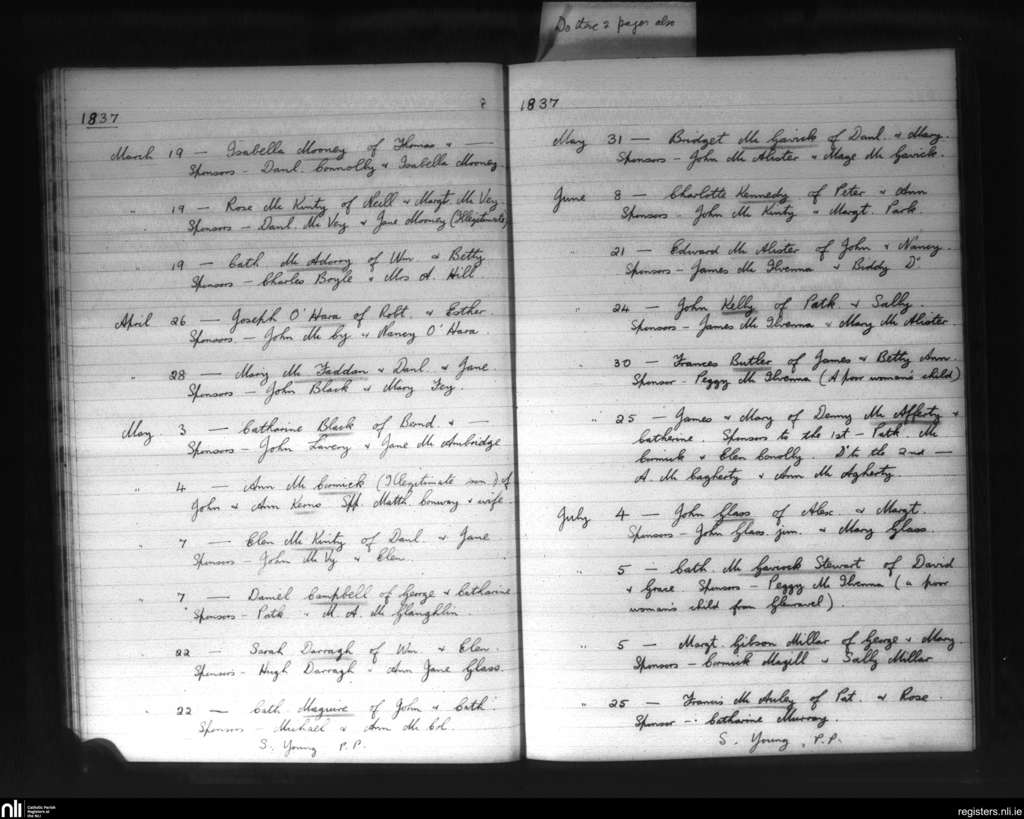 Do these 2 pages also
1837
March 19 — Isabella Mooney of Thomas & —
Sponsors - Danl. Connolly & Isabella Mooney
" 19 — Rose Mc Kinty of Neill & Margt. Mc Vey
Sponsors — Danl. Mc Vey & Jane Mooney (Illegitimate)
19 — Cath. Mc Adorey of Wm. & Betty
Sponsors — Charles Boyle & Mrs A. Hill
April 26 — Joseph O'Hara of Robt. & Esther
Sponsors. — John Mc & Nancy O'Hara.
" 28 — Mary Mc Faddan & Danl. & Jane
Sponsors — John Black & Mary Foy.
May 3 — Catharine Black of Bernd. & —
Sponsors - John Lavery & Jane Mc Ambridge
" 4 — Ann Mc Cormick (Illegitimate ) of
John & Ann Kerns Spp. Matth. Conway & wife.
" 7 — Elen Mc Kinty of Danl. & Jane
Sponsors — John Mc Vy & Elen.
" 7 — Daniel Campbell of George & Catharine
Sponsors - Patk " M. A. Mc Glaughlin
22 — Sarah Darragh of Wm. & Elen.
Sponsors - Hugh Darragh " Ann Jane Glass.
" 22 — Cath Maguire of John & Cath
Sponsors — Michael & Ann Mc
S. Young P.P.
1837
May 31 — Bridget Mc Gavick of Danl. & Mary.
Sponsors — John Mc Alister & Mage Mc Gavick.
June 8 — Charlotte Kennedy of Peter & Ann
Sponsors — John Mc Kinty & Margt. Park.
" 21 — Edward Mc Alister of John & Nancy.
Sponsors — James Mc Ilvenna & Biddy Do
" 24 — John Kelly of Patk & Sally.
Sponsors — James Mc Ilvenna & Mary Mc Alister.
" 30 — Frances Butler of James & Betty Ann.
Sponsor - Peggy Mc Ilvenna (A poor woman's child)
" 25 — James & Mary of Denny Mc Afferty &
Catherine. Sponsors to the 1st - Patk. Mc
Cormick & Elen Conolly. Do to the 2nd —
A. Mc Cagherty & Ann Mc Agherty.
July 4 — John Glass of Alex. & Margt.
Sponsors - John Glass jun. & Mary Glass.
" 5 — Cath. Mc Gavock Stewart of David
& Grace Sponsors - Peggy Mc Ilvenna (a poor
woman's child from Glenravel).
" 5 — Margt. Gibson Millar of George & Mary
Sponsors — Cormick Magill & Sally Millar
" 25 — Francis Mc Auley of Pat. & Rose
Sponsor -- Catharine Murray.
S. Young, P.P.
nli
Catholic Parish
Registers at
the NLI
registers.nli.ie